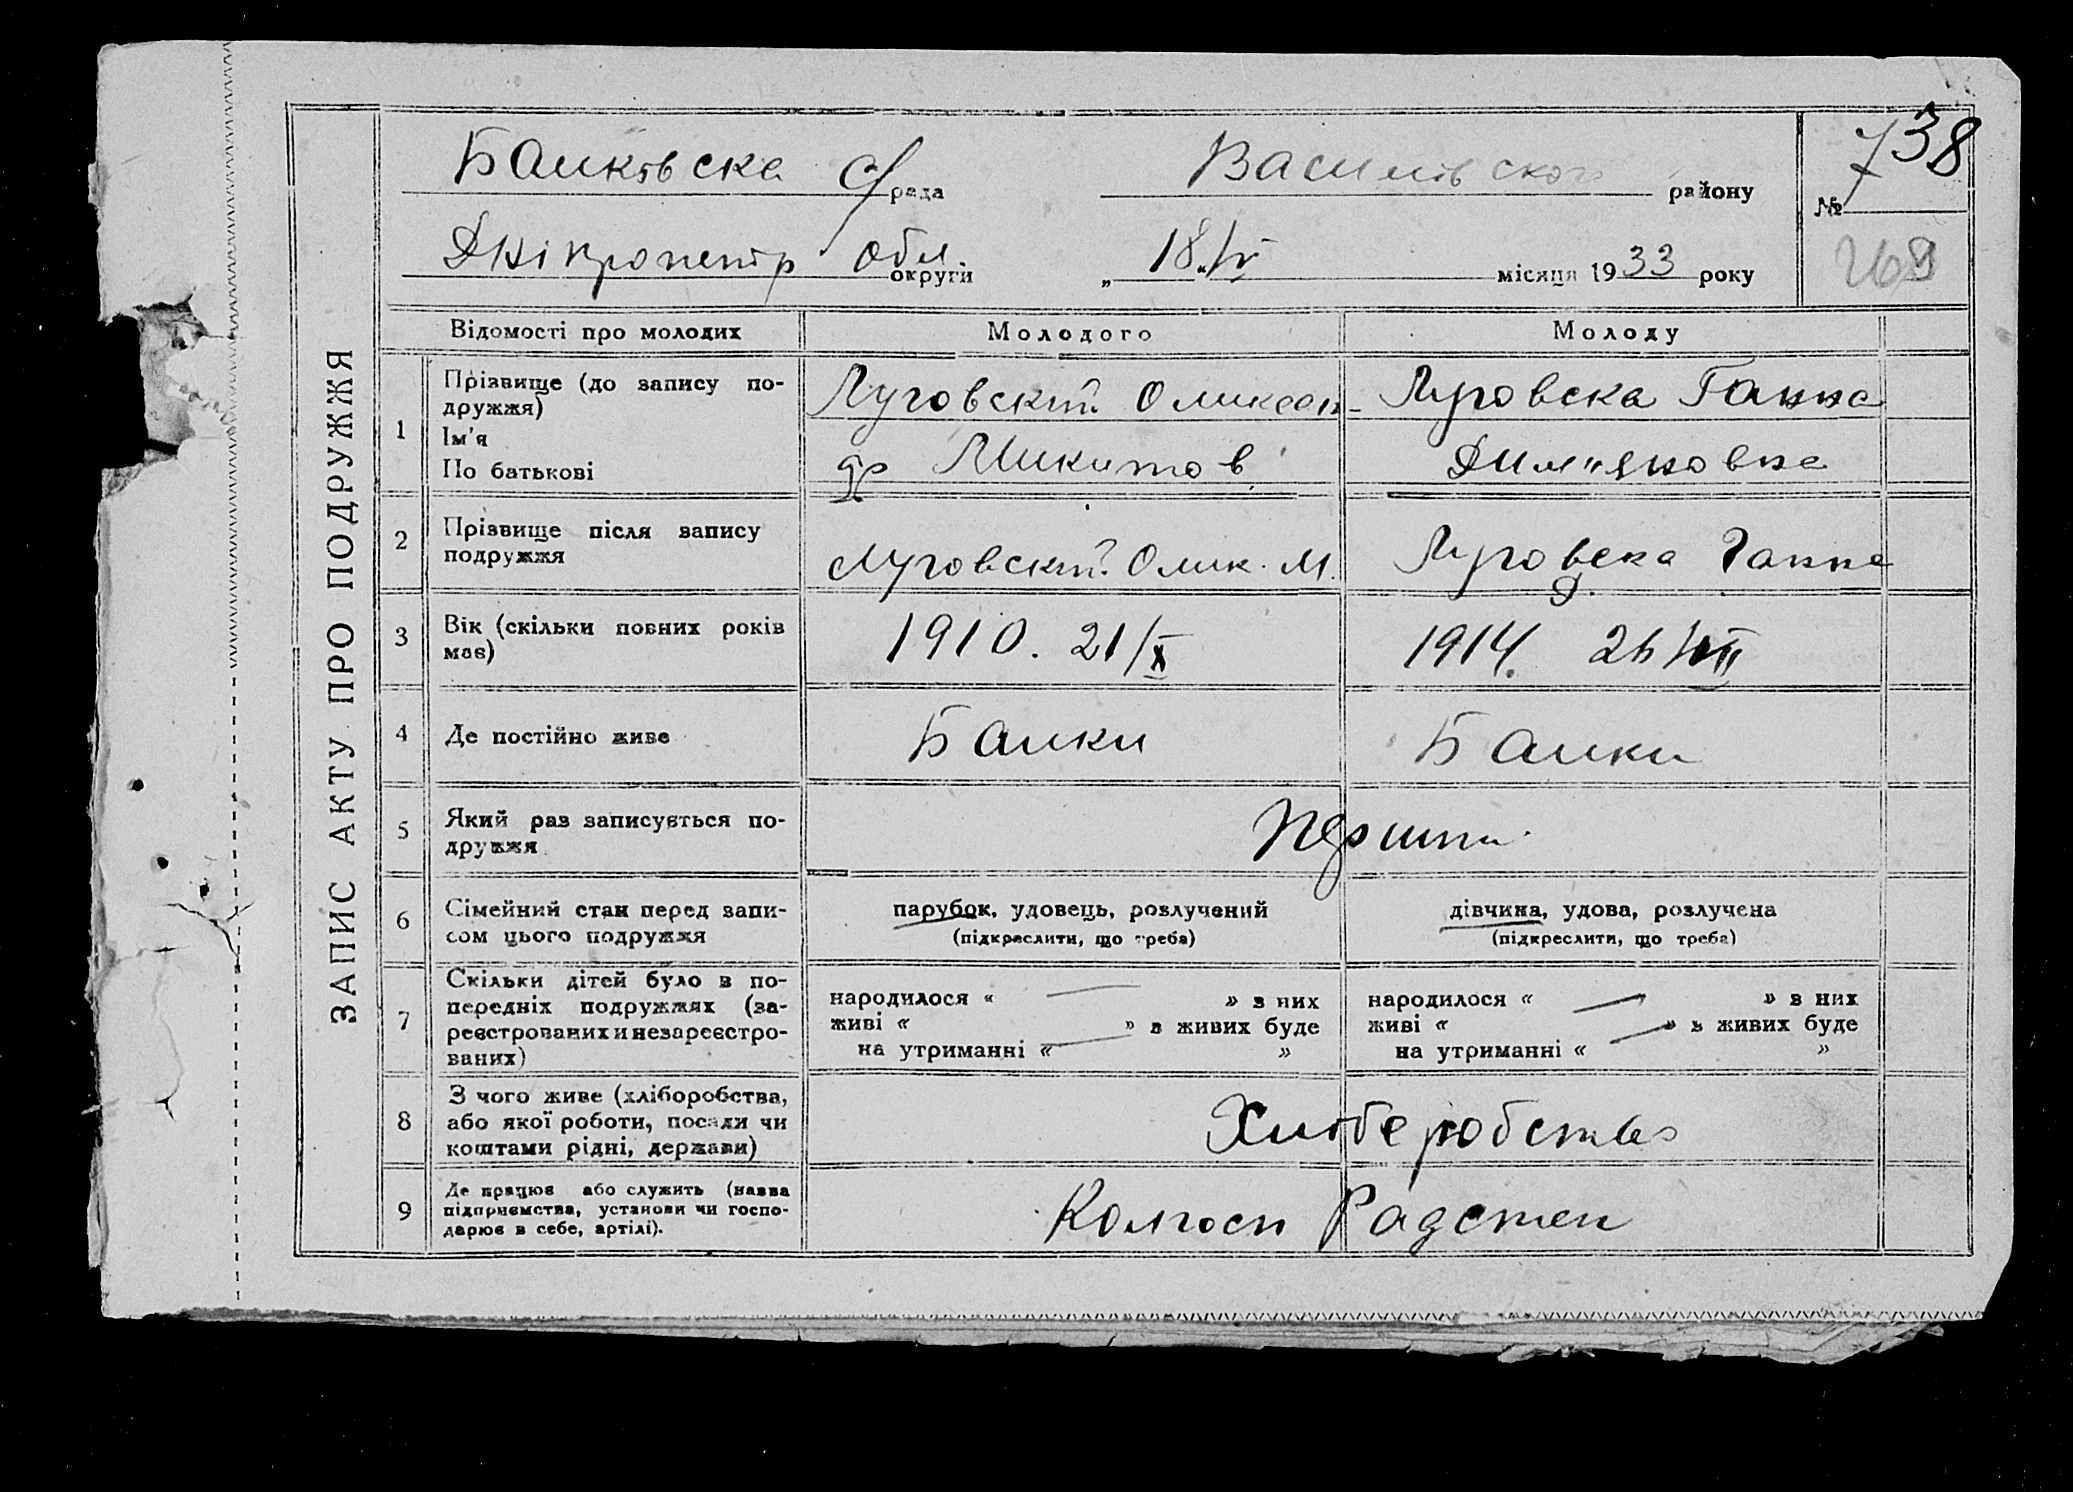 ЗАПИС АКТУ ПРО ПОДРУЖЖЯ
Балківська с/рада
Василівского району
№ 738
Дніпропетр обл. округи
„18" IV місяця 1933 року
269
Відомості про молодих
Молодого
Молоду
1
Прізвище (до запису по-
дружжя)
Ім'я
По батькові
Луговский Олексан-
др Микитов
Луговска Ганна
Дим'яновна
2
Прізвище після запису
подружжя
Луговский Олек. М.
Луговска Ганна
Д.
3
Вік (скільки повних років
має)
1910. 21/X
1914.
4
Де постійно живе
Балки
Балки
5
Який раз записується по-
дружжя
Перший
6
Сімейний стан перед запи-
сом цього подружжя
парубок, удовець, розлучений
(підкреслити, що треба)
дівчина, удова, розлучена
(підкреслити, що треба)
7
Скільки дітей було в по-
передніх подружжях (за-
реєстрованих и незареєстро-
ваних)
народилося « — » з них
живі « » з живих буде
на утриманні « — »
народилося « — » в них
живі « » з живих буде
на утриманні « — »
8
З чого живе (хліборобства,
або якої роботи, посади чи
коштами рідні, держави)
Хлиборобство
9
Де працює або служить (назва
підприємства, установи чи госпо-
дарює в себе, артілі).
Колгосп Радстеп